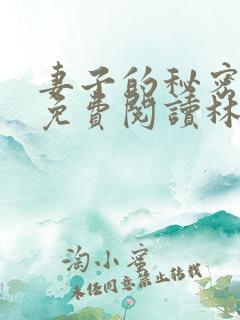 妻子的秘密
免費閱讀林
淘小蜜
未經同意禁止轉載